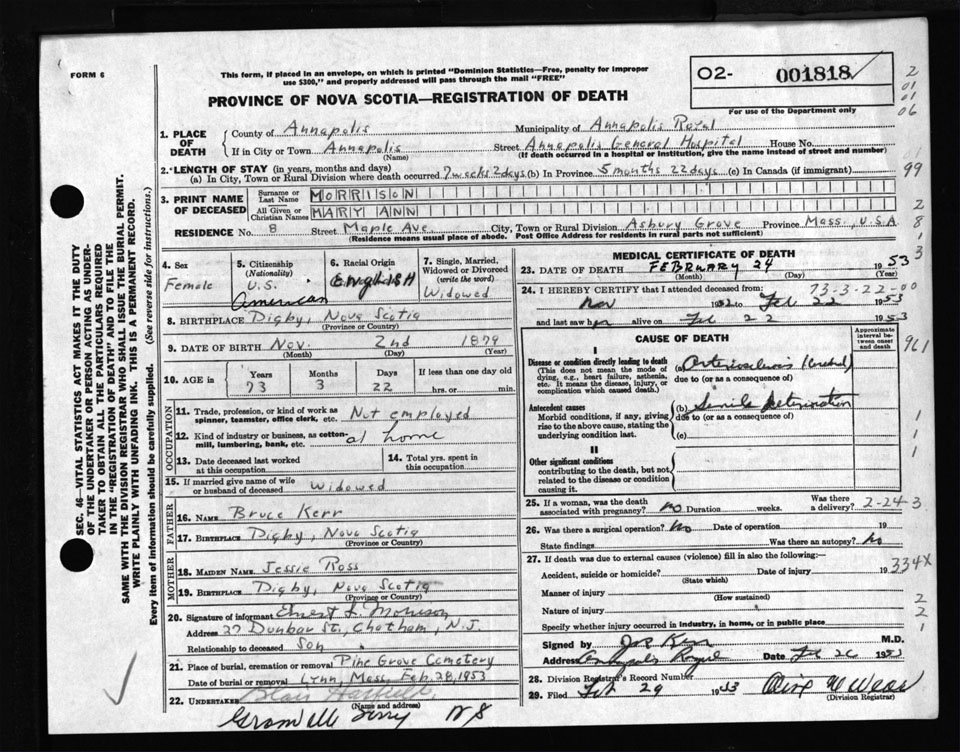 FORM 6
This form, if placed in an envelope, on which is printed "Dominion Statistics—Free, penalty for improper
use $300," and properly addressed will pass through the mail "FREE"
02- 001818
For use of the Department only
2
01
01
06
PROVINCE OF NOVA SCOTIA—REGISTRATION OF DEATH
1. PLACE OF DEATH
County of Annapolis Municipality of Annapolis Royal
If in City or Town Annapolis (Name) Street Annapolis General Hospital House No.
(If death occurred in a hospital or institution, give the name instead of street and number)
2. LENGTH OF STAY (in years, months and days)
(a) In City, Town or Rural Division where death occurred 7 weeks 2 days (b) In Province 5 months 22 days (c) In Canada (if immigrant)
99
3. PRINT NAME OF DECEASED
Surname or Last Name MORRISON
All Given or Christian Names MARY ANN
2
8
RESIDENCE No. 8 Street Maple Ave. City, Town or Rural Division Asbury Grove Province Mass., U.S.A
(Residence means usual place of abode. Post Office Address for residents in rural parts not sufficient)
4. Sex
Female
5. Citizenship (Nationality)
U.S.
American
6. Racial Origin
English
7. Single, Married, Widowed or Divorced (write the word)
Widowed
8. BIRTHPLACE Digby, Nova Scotia
(Province or Country)
9. DATE OF BIRTH Nov. 2nd 1879
(Month) (Day) (Year)
10. AGE in Years Months Days If less than one day old
73 3 22 hrs. or min.
OCCUPATION
11. Trade, profession, or kind of work as spinner, teamster, office clerk, etc. Not employed
12. Kind of industry or business, as cotton-mill, lumbering, bank, etc. at home
13. Date deceased last worked at this occupation
14. Total yrs. spent in this occupation
15. If married give name of wife or husband of deceased Widowed
FATHER
16. Name Bruce Kerr
17. Birthplace Digby, Nova Scotia
(Province or Country)
MOTHER
18. Maiden Name Jessie Ross
19. Birthplace Digby, Nova Scotia
(Province or Country)
20. Signature of informant Ernest L. Morrison
Address 27 Dunbar St., Chatham, N.J.
Relationship to deceased Son
21. Place of burial, cremation or removal Pine Grove Cemetery
Date of burial or removal Lynn, Mass, Feb. 28, 1953
22. Undertaker Blair
(Name and address)
Granville Ferry NS
MEDICAL CERTIFICATE OF DEATH
23. DATE OF DEATH FEBRUARY 24 1953
(Month) (Day) (Year)
3
24. I HEREBY CERTIFY that I attended deceased from: 73-3-22-00
Nov 1952 to Feb 22 1953
and last saw her alive on Feb 22 1953
CAUSE OF DEATH
Approximate interval between onset and death
961
I
Disease or condition directly leading to death
(This does not mean the mode of dying, e.g., heart failure, asthenia, etc. It means the disease, injury, or complication which caused death.)
(a) Arteriosclerosis
due to (or as a consequence of)
Antecedent causes
Morbid conditions, if any, giving rise to the above cause, stating the underlying condition last.
(b) Senile deterioration
due to (or as a consequence of)
(c)
1
1
1
II
Other significant conditions
contributing to the death, but not related to the disease or condition causing it.
25. If a woman, was the death associated with pregnancy? No Duration weeks. Was there a delivery? 2-24-3
26. Was there a surgical operation? No Date of operation 19
State findings Was there an autopsy? No
27. If death was due to external causes (violence) fill in also the following:—
Accident, suicide or homicide? Date of injury 19 334X
(State which)
Manner of injury
(How sustained)
2
Nature of injury
2
Specify whether injury occurred in industry, in home, or in public place
1
Signed by Kerr M.D.
Address Annapolis Royal Date Feb 26 1953
28. Division Registrar's Record Number
29. Filed Feb 29 1953
(Division Registrar)
SEC. 46—VITAL STATISTICS ACT MAKES IT THE DUTY
OF THE UNDERTAKER OR PERSON ACTING AS UNDER-
TAKER TO OBTAIN ALL THE PARTICULARS REQUIRED
IN THE "REGISTRATION OF DEATH" AND TO FILE THE
SAME WITH THE DIVISION REGISTRAR WHO SHALL ISSUE THE BURIAL PERMIT.
WRITE PLAINLY WITH UNFADING INK. THIS IS A PERMANENT RECORD.
Every item of information should be carefully supplied. (See reverse side for instructions.)